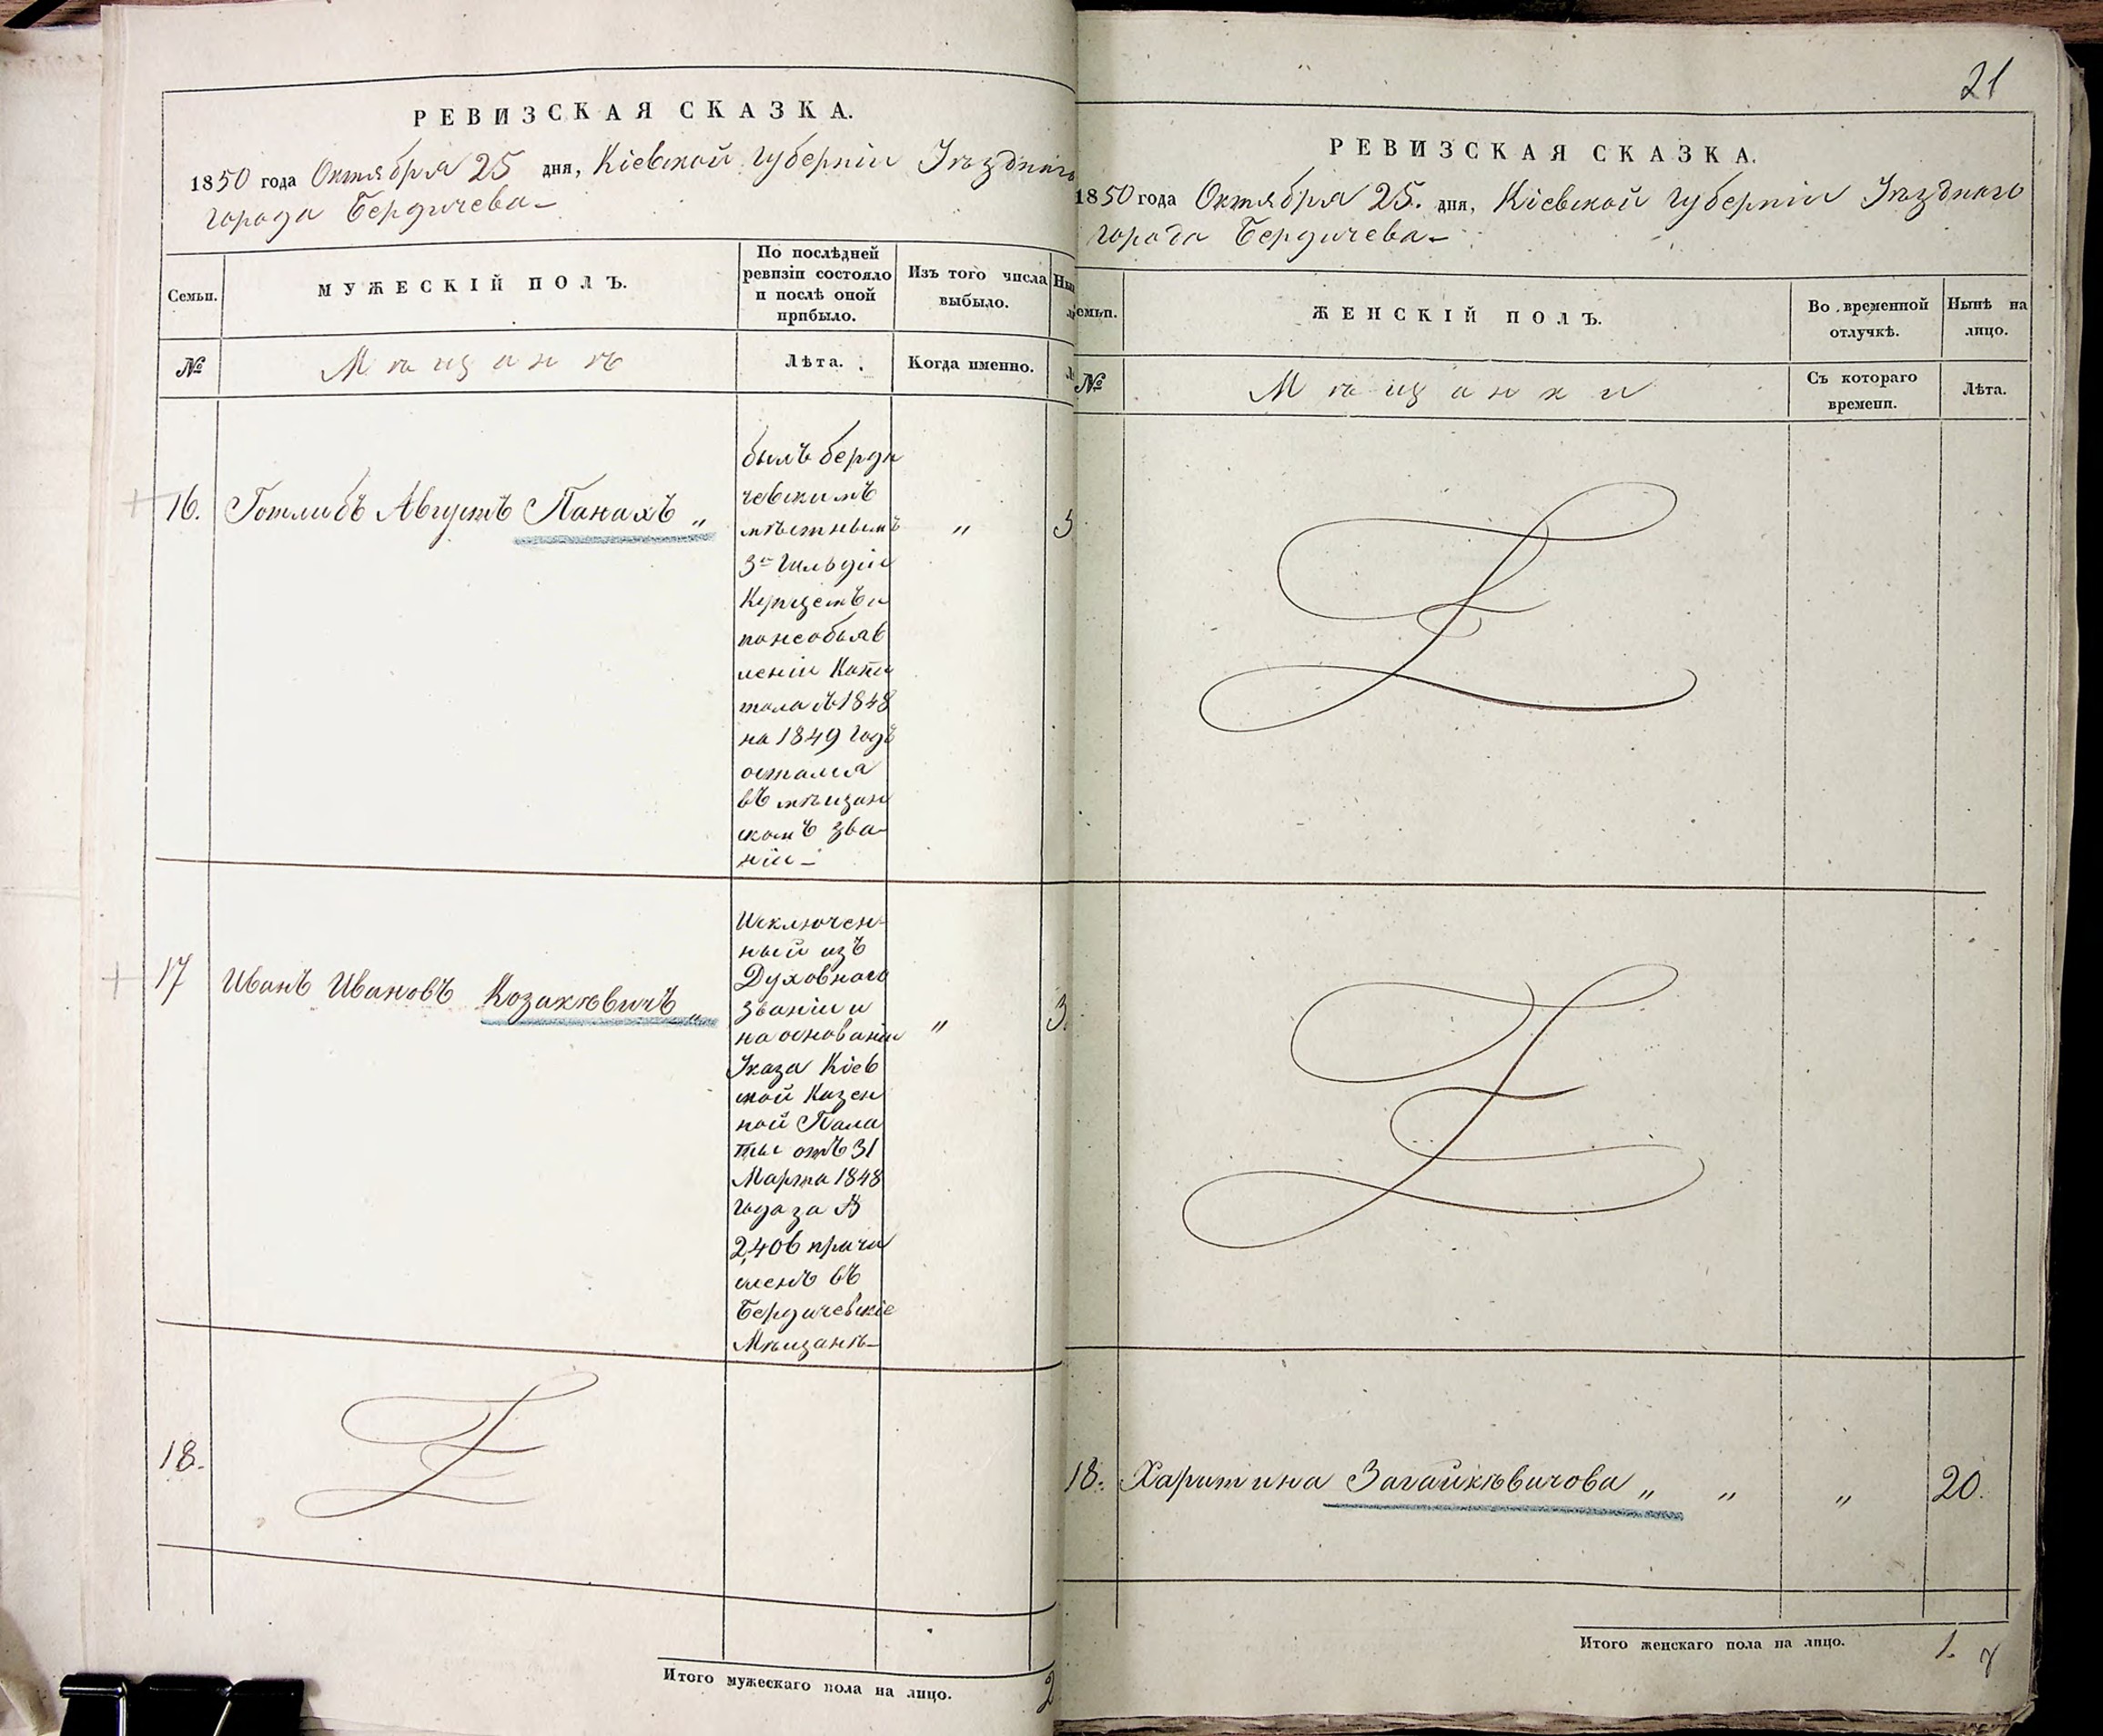 РЕВИЗСКАЯ СКАЗКА.
1850 года Октября 25 дня, Кіевской Губерніи Уѣзднаго
города Бердичева
Семьи.
МУЖЕСКІЙ ПОЛЪ.
По послѣдней
ревизіи состояло
и послѣ оной
прибыло.
Изъ того числа
выбыло.
№
Мѣщанѣ
Лѣта.
Когда именно.
16.
Готлибъ Августъ Панахъ „
былъ Берди
чевскимъ
мѣстнымъ
3й Гильдіи
Купцемъ и
по необъяв
леніи Капи
тала съ 1848
на 1849 Годъ
остался
въ мѣщан
скомъ зва-
ніи-
„
3
17
Иванъ Ивановъ Козакѣвичъ „
Исключен-
ный изъ
Духовнаго
званіи и
на основаніи
Указа Кіев
ской Казен
ной Пала
ты отъ 31
Марта 1848
Года за №
2,406 причи
сленъ въ
Бердичевскіе
Мѣщанѣ-
„
3
18.
Итого мужескаго пола на лицо.
2
21
РЕВИЗСКАЯ СКАЗКА.
1850 года Октября 25. дня, Кіевской Губерніи Уѣзднаго
города Бердичева-
емьи.
ЖЕНСКІЙ ПОЛЪ.
Во временной
отлучкѣ.
Нынѣ на
лицо.
№
Мѣщанки
Съ котораго
времени.
Лѣта.
18. Харитина Загайкѣвичова „ „ „ 20.
Итого женскаго пола на лицо. 1.